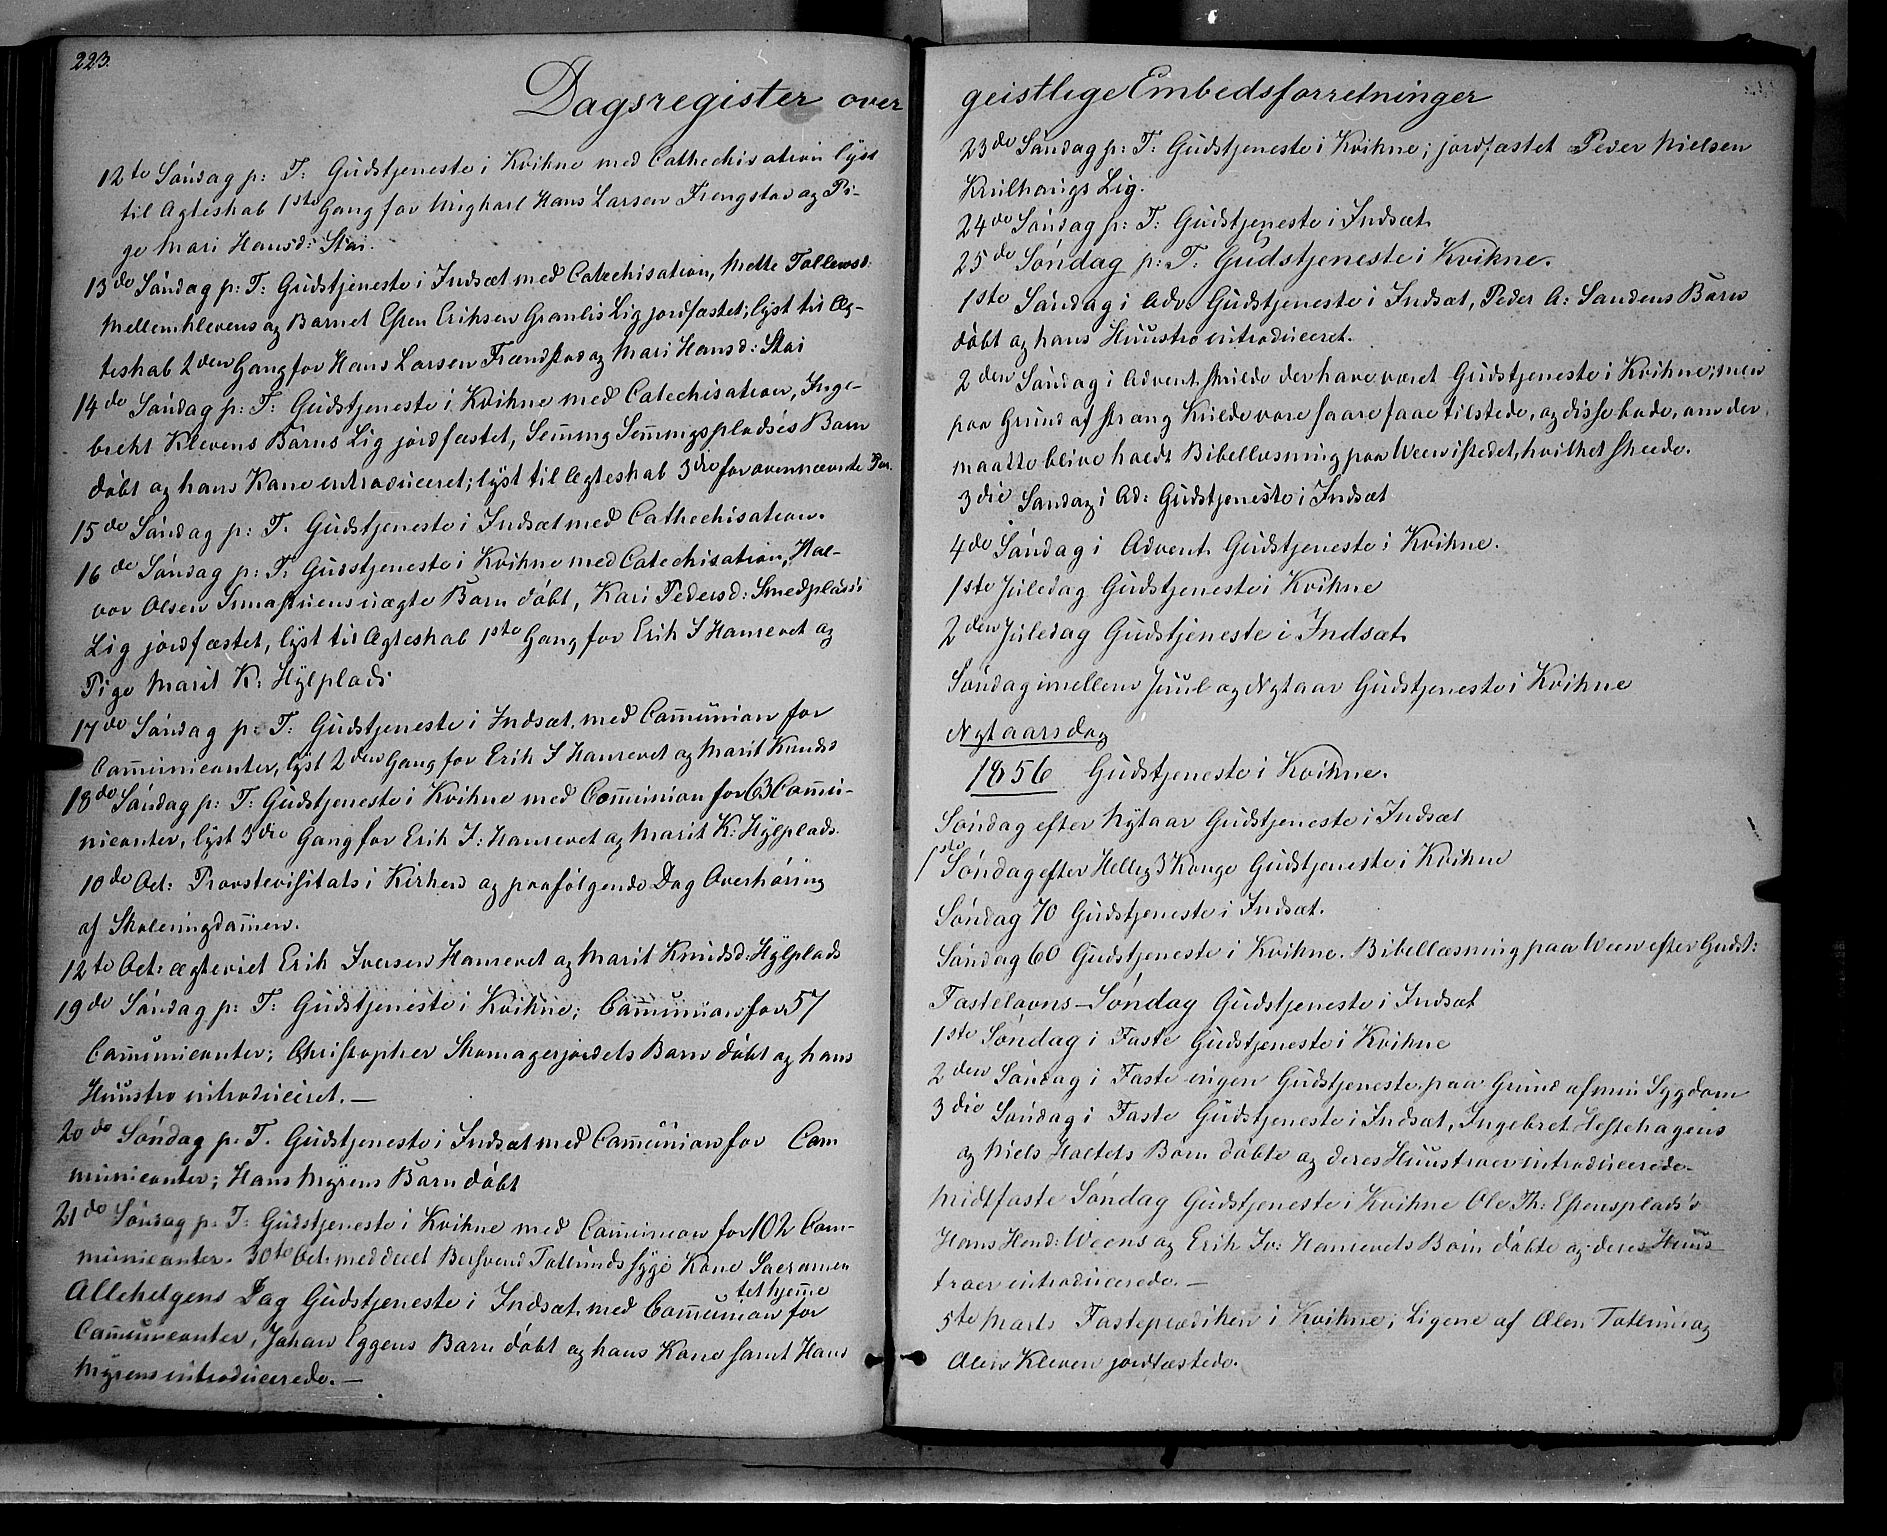 223.
Dagsregister over
12te Søndag p: T: Gudstjeneste i Kvikne med Cathechisation lyst
til Ægteskab 1ste Gang for Ungkarl Hans Larsen Frengstad og Pi-
ge Mari Hansd: Stai.
13de Søndag p: T: Gudstjeneste i Indsæt med Catechisation, Mette Tollewsd:
Mellemklevens og Barnet Esten Eriksen Granlis Lig jordfæstet; lyst til Æg-
teskab 2den Gang for Hans Larsen Frændstad og Mari Hansd: Stai
14de Søndag p: T: Gudstjeneste i Kvikne med Catechisation, Inge-
breht Klevens Barns Lig jordfæstet, Semming Semmingspladses Barn
døbt og hans Kone introduceret; lyst til Ægteskab 3die for ovennævnte Par.
15de Søndag p: T. Gudstjeneste i Indsæt med Cathechisation.
16de Søndag p: T: Gudstjeneste i Kvikne med Catechisation, Hal-
vor Olsen uægte Barn døbt, Kari Pedersd: Smedplads's
Lig jordfæstet, lyst til Ægteskab 1ste Gang for Erik I Hansevet og
Pige Marit K: Hylplads
17de Søndag p: T: Gudstjeneste i Indsæt med Comunion for
Comunicanter, lyst 2den Gang for Erik I Hansevet og Marit Knudsd
18de Søndag p: T: Gudstjeneste i Kvikne med Comunion for 63 Comu-
nicanter, lyst 3die Gang for Erik I: Hansevet og Marit K: Hylplads.
10de Oct: Provstevisitats i Kirken og paafølgende Dag Overhøring
af Skoleungdomen.
12te Oct: ægteviet Erik Iversen Hansevet og Marit Knudsd: Hylplads
19de Søndag p: T: Gudstjeneste i Kvikne; Comunion for 57
Comunicanter; Christopher Skomagerjordets Barn døbt og hans
Huustro introduceret. —
20de Søndag p. T. Gudstjeneste i Indsæt med Comunion for Com
municanter; Hans Myrens Barn døbt
21de Søndag p. T: Gudstjeneste i Kvikne med Comunion for 102 Com-
municanter. 30te Oct. meddeelt Bersvend Tollundss syge Kone Sacramen
tet hjemme
Allehelgens Dag Gudstjeneste i Indsæt med Comunion for
Comunicanter, Johan Eggens Barn døbt og hans Kone samt Hans
Myrens introducerede. —
geistlige Embedsforretninger
23de Søndag p: T: Gudstjeneste i Kvikne; jordfæstet Peder Nielsen
Krulhougs Lig.
24de Søndag p: T: Gudstjeneste i Indsæt
25de Søndag p: T: Gudstjeneste i Kvikne.
1ste Søndag i Adv. Gudstjeneste i Indsæt, Peder A: Sandens Barn
døbt og hans Huustro introduceret.
2den Søndag i Advent skulde der have været Gudstjeneste i Kvikne; men
paa Grund af stræng Kulde vare saare faae tilstede, og disse bade, om der
maatte blive holdt Bibellæsning paa Ween istedet, hvilket skeede.
3die Søndag i Ad: Gudstjeneste i Indsæt
4de Søndag i Advent Gudstjeneste i Kvikne.
1ste Juledag Gudstjeneste i Kvikne
2den Juledag Gudstjeneste i Indsæt
Søndag imellem Juul og Nytaar Gudstjeneste i Kvikne
Nytaarsdag
1856 Gudstjeneste i Kvikne.
Søndag efter Nytaar Gudstjeneste i Indsæt
1ste Søndag efter Hellig 3 Konge Gudstjeneste i Kvikne
Søndag 70 Gudstjeneste i Indsæt.
Søndag 60 Gudstjeneste i Kvikne. Bibellæsning paa Ween efter Gudst:
Fastelavns-Søndag Gudstjeneste i Indsæt
1ste Søndag i Faste Gudstjeneste i Kvikne
2den Søndag i Faste ingen Gudstjeneste paa Grund af min Sygdom
3die Søndag i Faste Gudstjeneste i Indsæt, Ingebret Hestehagens
og Niels Holtets Børn døbte og deres Huustroer introducerede.
Midtfaste Søndag Gudstjeneste i Kvikne Ole Th: Estensplads's
Hans Hend: Weens og Erik Iv: Hansevets Børn døbte og deres Huus
troer introducerede. —
5te Marts Fasteprædiken i Kvikne; Ligene af Olen Tollund og
Olen Kleven jordfæstede.